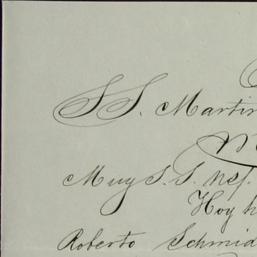 S. S. Martin
M
Muy S. S. Nos.
Hoy h
Roberto Schmid